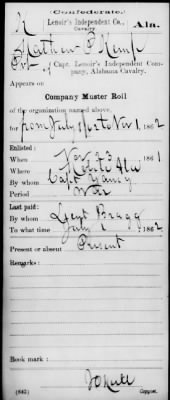 (Confederate.)
K Lenoir's Independent Co., Cavalry Ala.
Mathew P Kemp
Pvt, Capt. Lenoir's Independent Company, Alabama Cavalry.
Appears on
Company Muster Roll
of the organization named above,
for from July 1st to Nov 1, 1862
Enlisted:
When Nov 23, 1861
Where Ala
By whom Capt Yancy
Period War
Last paid:
By whom Lieut Bragg
To what time July 1, 1862
Present or absent Present
Remarks:
Book mark:
(642) Copyist.